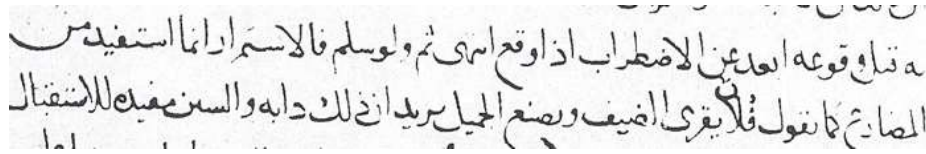 به قبل وقوعه ابعد عن الاضطراب اذا وقع انتهى ثم ولو سلم فالاستمرار انما استفيد من
المضارع كما تقول فلان يقرى الضيف ويصنع الجميل يريد ان ذلك دابه والسين مفيده للاستقبال